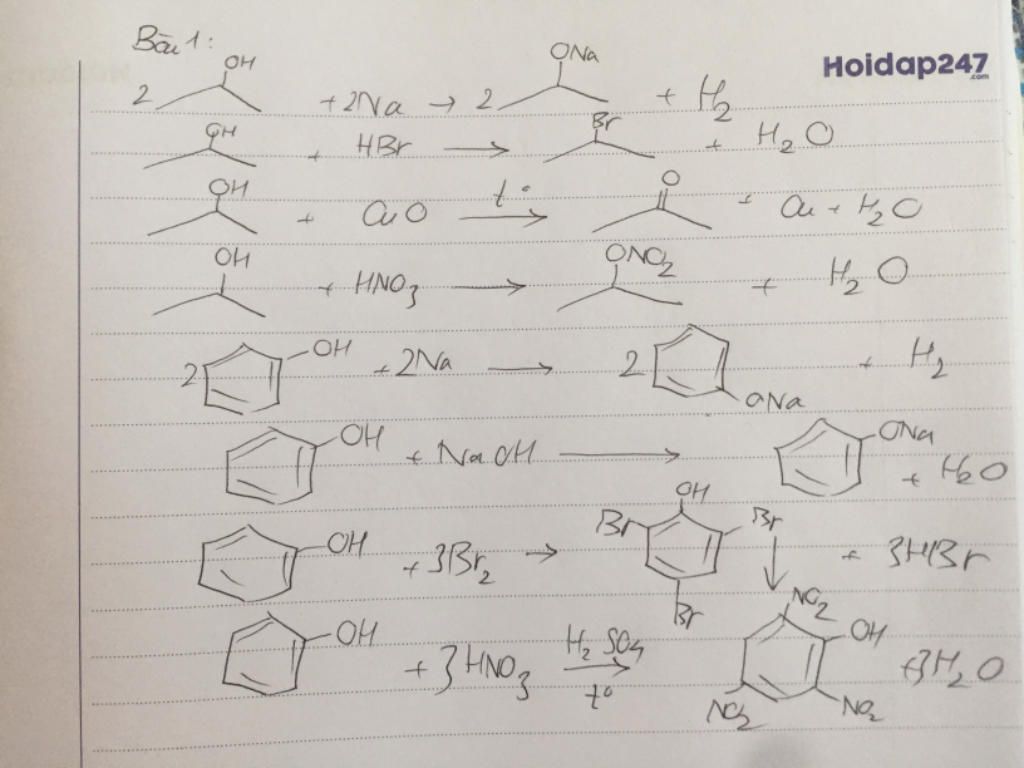 Bài 1:
Hoidap247
.com
2 OH + 2Na → 2 ONa + H2
OH + HBr → Br + H2O
OH + CuO t° → O + Cu + H2O
OH + HNO3 → ONO2 + H2O
2 OH + 2Na → 2 ONa + H2
OH + NaOH → ONa + H2O
OH + 3Br2 → Br OH Br Br ↓ + 3HBr
OH + 3HNO3 H2SO4 t° → NO2 OH NO2 NO2 + 3H2O